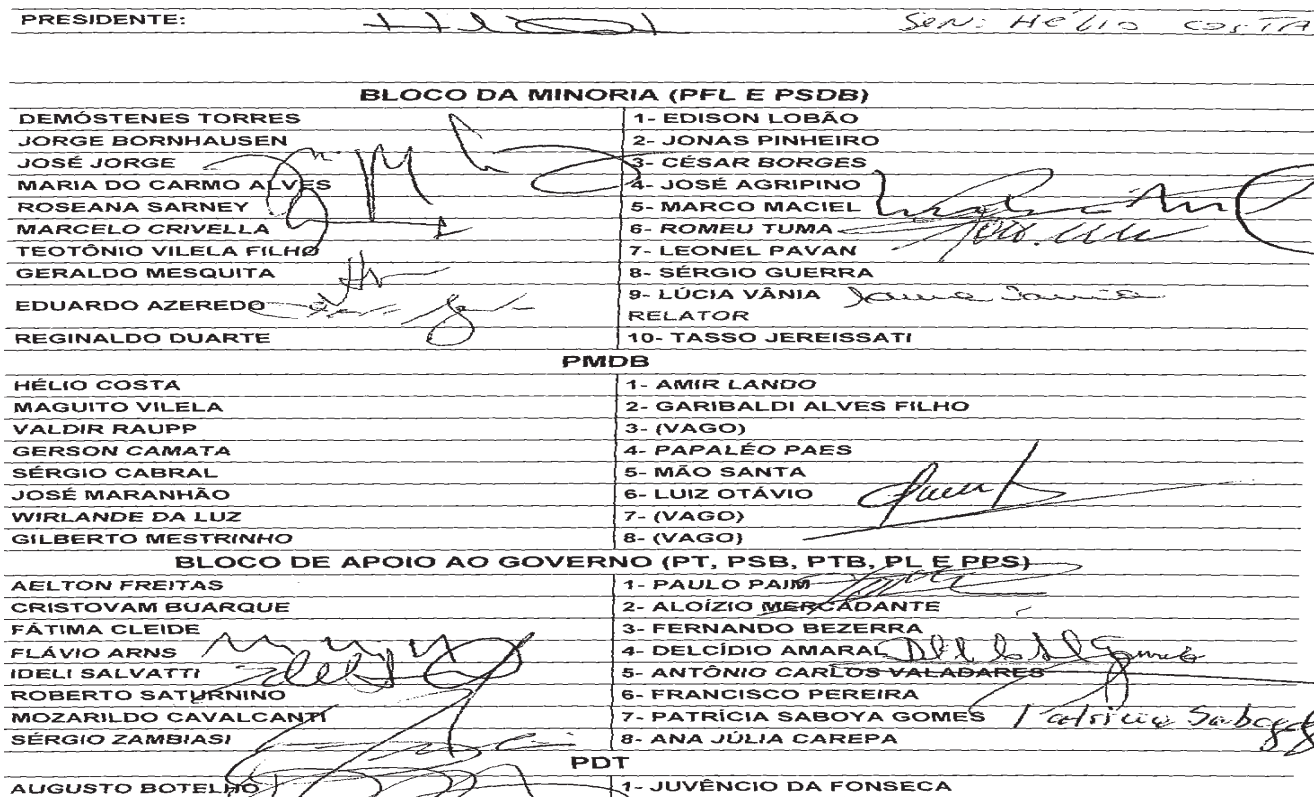 PRESIDENTE: SEN: HÉLIO COSTA
BLOCO DA MINORIA (PFL E PSDB)
DEMÓSTENES TORRES 1- EDISON LOBÃO
JORGE BORNHAUSEN 2- JONAS PINHEIRO
JOSÉ JORGE 3- CÉSAR BORGES
MARIA DO CARMO ALVES 4- JOSÉ AGRIPINO
ROSEANA SARNEY 5- MARCO MACIEL
MARCELO CRIVELLA 6- ROMEU TUMA
TEOTÔNIO VILELA FILHO 7- LEONEL PAVAN
GERALDO MESQUITA 8- SÉRGIO GUERRA
EDUARDO AZEREDO 9- LÚCIA VÂNIA
RELATOR
REGINALDO DUARTE 10- TASSO JEREISSATI
PMDB
HÉLIO COSTA 1- AMIR LANDO
MAGUITO VILELA 2- GARIBALDI ALVES FILHO
VALDIR RAUPP 3- (VAGO)
GERSON CAMATA 4- PAPALÉO PAES
SÉRGIO CABRAL 5- MÃO SANTA
JOSÉ MARANHÃO 6- LUIZ OTÁVIO
WIRLANDE DA LUZ 7- (VAGO)
GILBERTO MESTRINHO 8- (VAGO)
BLOCO DE APOIO AO GOVERNO (PT, PSB, PTB, PL E PPS)
AELTON FREITAS 1- PAULO PAIM
CRISTOVAM BUARQUE 2- ALOÍZIO MERCADANTE
FÁTIMA CLEIDE 3- FERNANDO BEZERRA
FLÁVIO ARNS 4- DELCÍDIO AMARAL
IDELI SALVATTI 5- ANTÔNIO CARLOS VALADARES
ROBERTO SATURNINO 6- FRANCISCO PEREIRA
MOZARILDO CAVALCANTI 7- PATRÍCIA SABOYA GOMES Patrícia Saboya
SÉRGIO ZAMBIASI 8- ANA JÚLIA CAREPA
PDT
AUGUSTO BOTELHO 1- JUVÊNCIO DA FONSECA